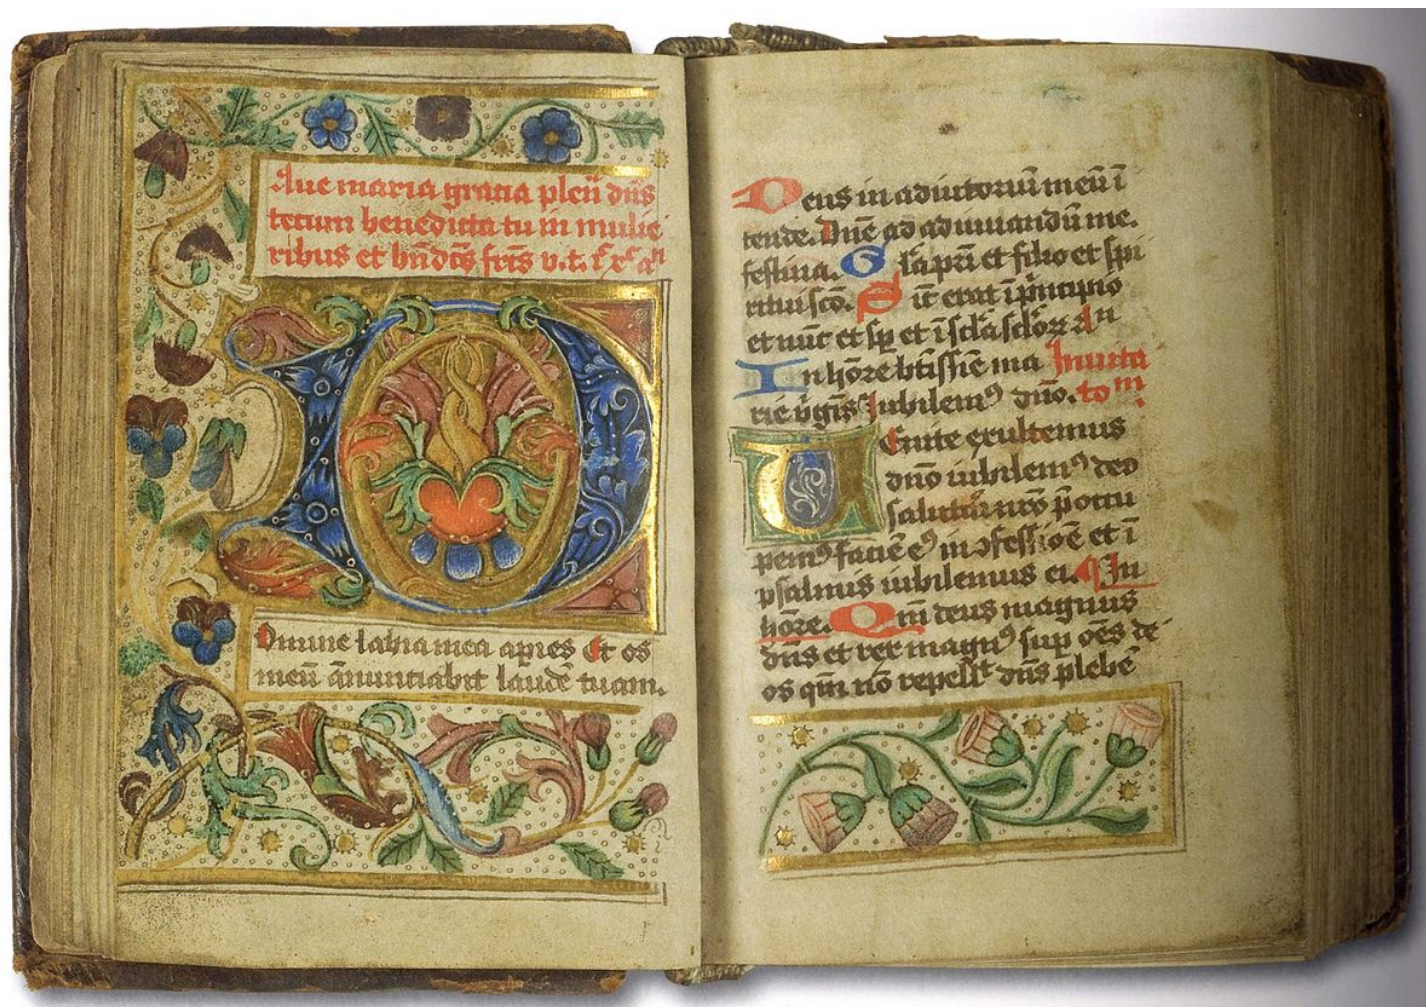 Aue maria gratia plen̄ dn̄s
tecum benedicta tu in mulie
ribus et bn̄dc̄s frc̄s v. t.
Domine labia mea apries Et os
meū ānuntiabit laudē tuam.
Deus in adiutoriū meū ī
tende. Dn̄e ad adiuuandū me.
festina. Gl̄a pr̄i et filio et spi
ritui sc̄o. Sic̄ erat ī p̄ncipio
et nūc et sp̄ et ī scl̄a scl̄oꝝ An
In hōre btissīe ma Inuita
rie v̄gīs Iubilem⁹ dn̄o. to m̄.
Uenite exultemus
dn̄o iubilem⁹ deo
salutar̄ nr̄o p̄occu
pem⁹ faciē e⁹ in ↄfessiōē et ī
psalmis iubilemus ei. In
hōre. Qm̄ deus magnus
dn̄s et rex magn⁹ sup̄ oēs de
os qm̄ nō repell̄t dn̄s plebē